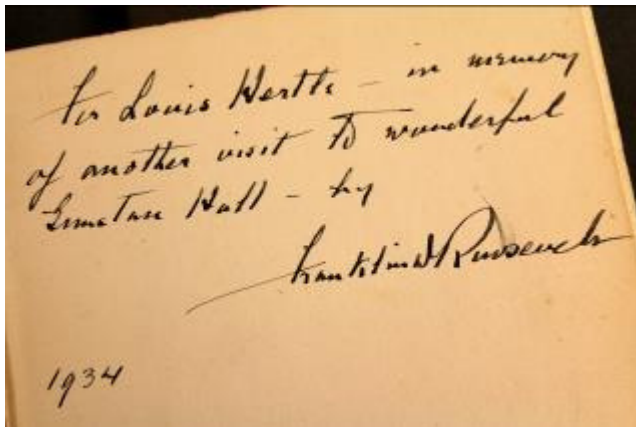 for Louis Hertle – in memory
of another visit to wonderful
Gunston Hall – by
Franklin D Roosevelt
1934